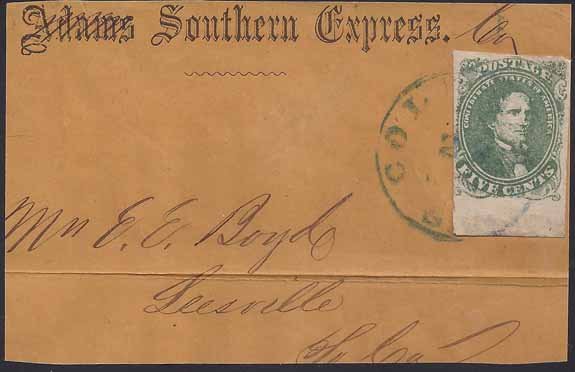 Adams Southern Express. Co
POSTAGE
CONFEDERATE STATES OF AMERICA
FIVE CENTS
COL
Mr E. E. Boyd
Leesville
So Ca